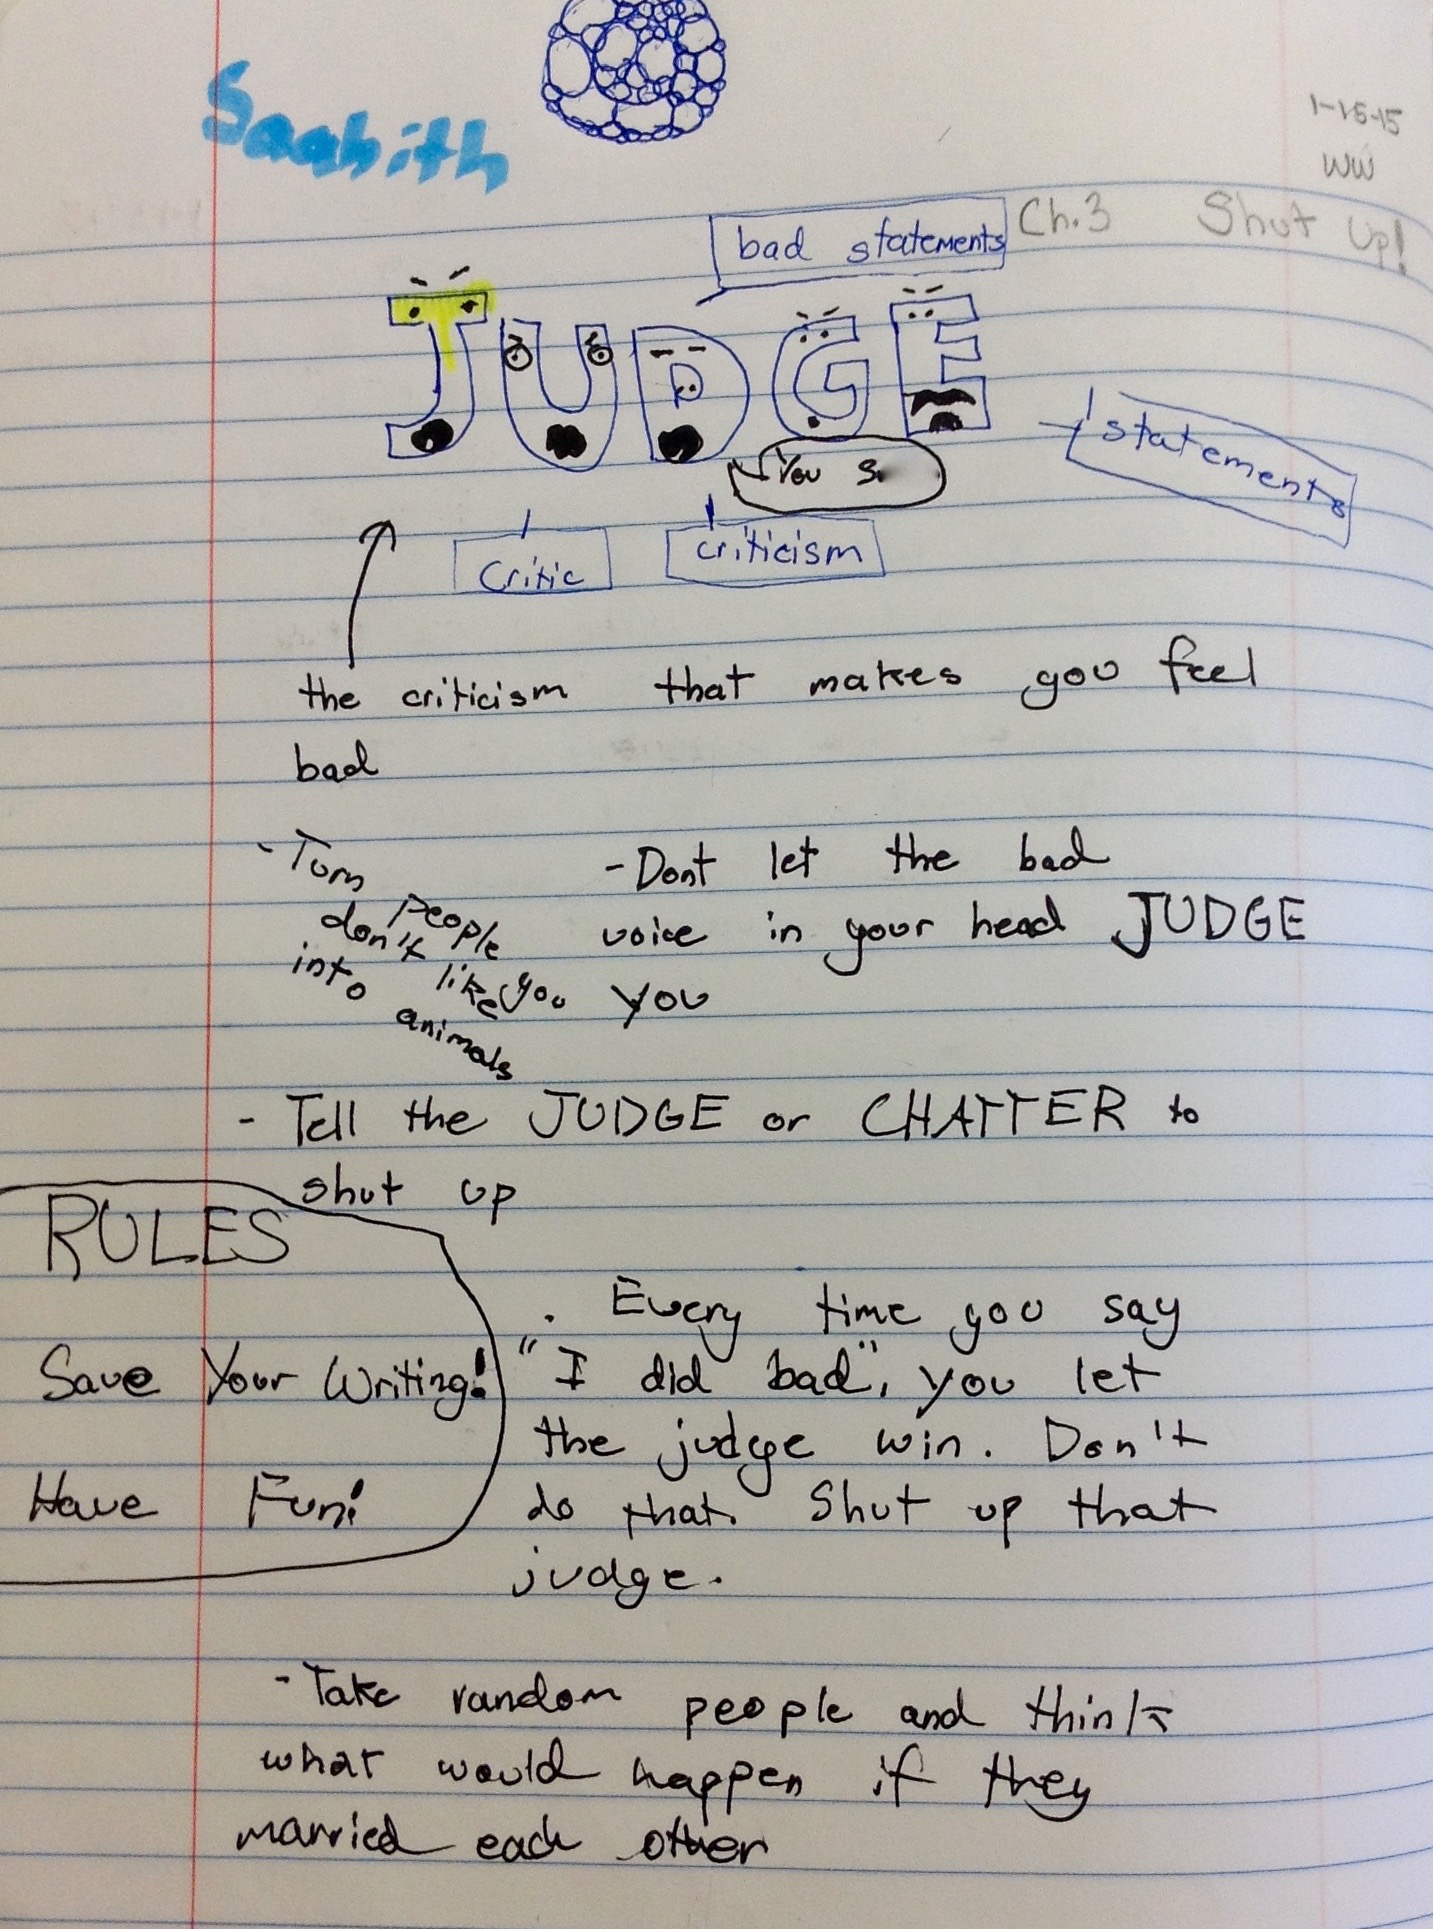 Saabith
1-15-15
WW
Ch.3 Shut Up!
bad statements
JUDGE
statements
You s
critic
criticism
the criticism that makes you feel
bad
- Turn
people
don't like you
into
animals
- Dont let the bad
voice in your head JUDGE
you
- Tell the JUDGE or CHATTER to
shut up
RULES
Save Your Writing!
Have Fun!
. Every time you say
"I did bad", you let
the judge win. Don't
do that. Shut up that
judge.
- Take random people and think
what would happen if they
married each other